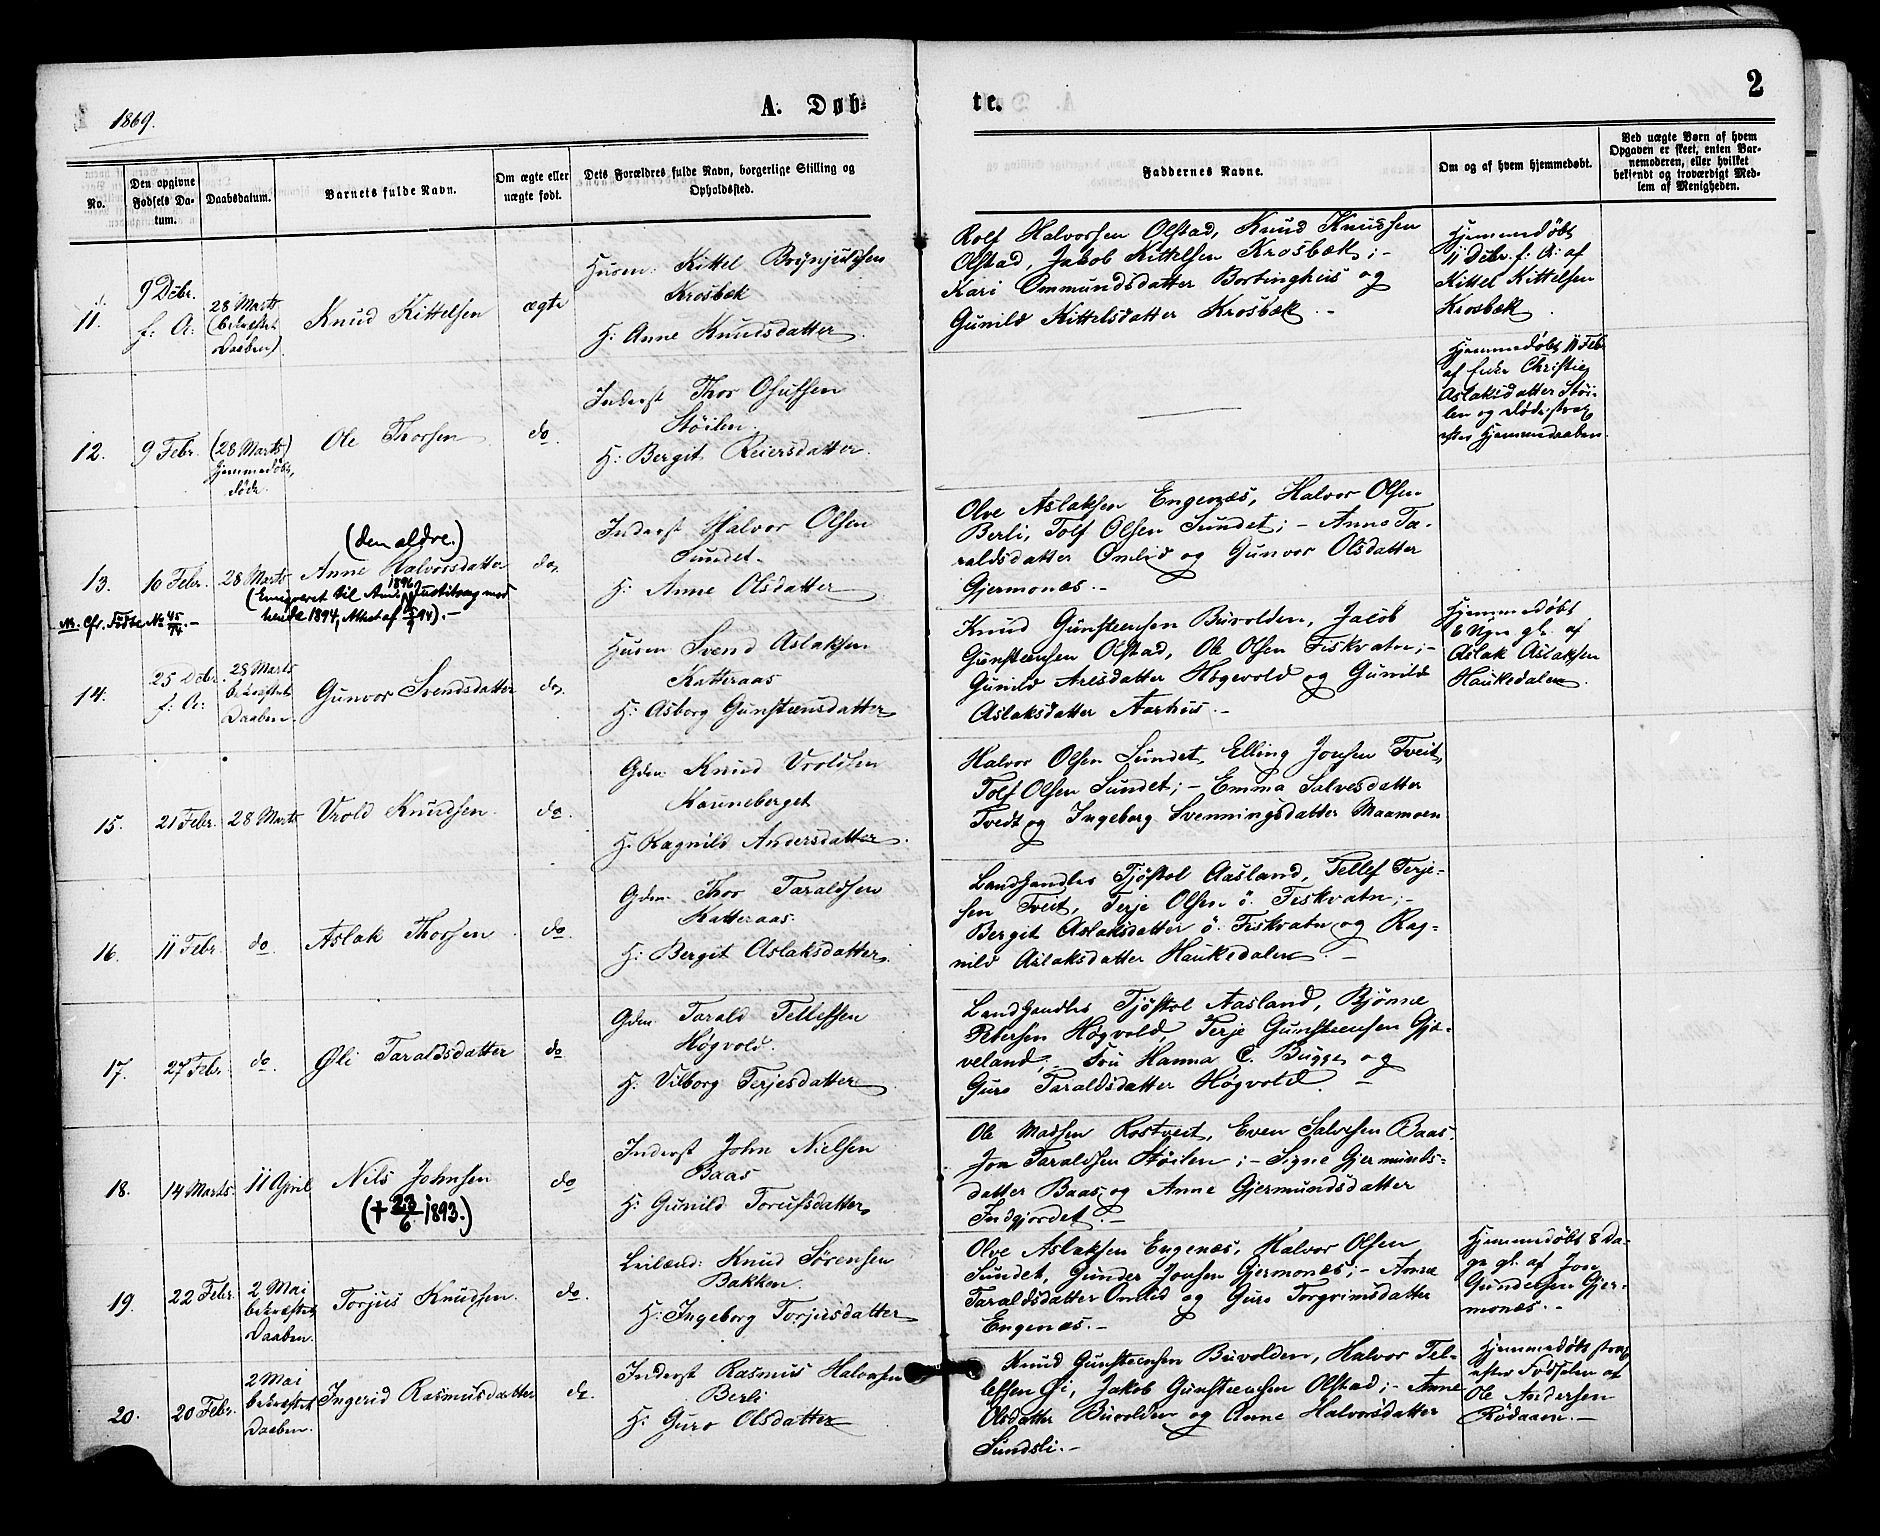 1869.
A. Døb-
te.
2
No.
Den opgivne Fødsels Datum.
Daabsdatum.
Barnets fulde Navn.
Om ægte eller uægte født.
Dets Forældres fulde Navn, borgerlige Stilling og Opholdssted.
Faddernes Navne.
Om og af hvem hjemmedøbt.
Ved uægte Børn af hvem Opgaven er skeet, enten Barnemoderen, eller hvilket bekjendt og troværdigt Medlem af Menigheden.
11.
9 Debr.
f: A:
28 Marts
(bekræftet
Daaben)
Knud Kittelsen
ægte
Husm: Kittel Brynjulfsen
Krosbæk
H: Anne Knudsdatter
Rolf Halvorsen Olstad, Knud Knudsen
Olstad, Jakob Kittelsen Krosbæk; -
Kari Ommundsdatter Bortinghus og
Gunild Kittelsdatter Krosbæk. -
Hjemmedøbt
11 Debr. f: A: af
Kittel Kittelsen
Krosbæk
12.
9 Febr.
(28 Marts)
hjemmedøbt,
døde.
Ole Thorsen
do.
Inderst Thor Olufsen
Støilen.
H: Bergit Reiersdatter.
Hjemmedøbt 11 Febr
af Enke Christie
Aslaksdatter Støi-
len og døde strax
efter Hjemmedaaben.
13.
10 Febr.
28 Marts
(den ældre.)
Anne Halvorsdatter
(Emigreret til Am. 1896
hende 1894, Attest af
No. Cfr. Fødte No 45/74. -
do,
Inderst Halvor Olsen
Sundet.
H: Anne Olsdatter
Olve Aslaksen Engenæs, Halvor Olsen
Berli, Tolf Olsen Sundet; - Anne Ta-
raldsdatter Omlid og Gunvor Olsdatter
Gjermonæs. -
14.
25 Debr.
f. A:
28 Marts
bekræftet
Daaben
Gunvor Svendsdatter
do,
Husm Svend Aslaksen
Katteraas
H: Asborg Gunsteensdatter
Knud Gunsteensen Buvolden, Jacob
Gunsteensen Olstad, Ole Olsen Fiskvatn; -
Gunild Aresdatter Høgevold og Gunild
Aslaksdatter Aarhus. -
Hjemmedøbt
6 Uger gl. af
Aslak Aslaksen
Haukedalen
15.
21 Febr.
28 Marts
Vrold Knudsen
do.
Gdm. Knud Vroldsen
Kauneberget
H: Ragnild Andersdatter.
Halvor Olsen Sundet, Elling Jonsen Tveit,
Tolf Olsen Sundet; - Emma Salvesdatter
Tvedt og Ingeborg Svenningsdatter Maamoen
16.
11 Febr.
do.
Aslak Thorsen
do.
Gdm. Thor Taraldsen
Katteraas.
H: Bergit Aslaksdatter.
Landhandler Tjøstol Aasland, Tellef Terje-
sen Tveit, Terje Olsen ö. Fiskvatn; -
Bergit Aslaksdatter ö. Fiskvatn og Rag-
nild Aslaksdatter Haukedalen. -
17.
27 Febr.
do.
Øli Taraldsdatter
do
Gdm. Tarald Tellefsen
Høgvold.
H: Vilborg Terjesdatter
Landhandler Tjøstol Aasland, Bjønne
Petersen Høgvold, Terje Gunsteensen Gjø-
veland; Fru Hanna C. Bugge og
Guro Taraldsdatter Høgvold. -
18.
14 Marts
11 April
Nils Johnsen
(† 23/6 1893.)
do
Inderst John Nielsen
Baas
H: Gunild Torufsdatter
Ole Madsen Rostveit, Even Salvesen Baas,
Jon Taraldsen Støilen; - Signe Gjermunds-
datter Baas og Anne Gjermundsdatter
Indgjordet. -
19.
22 Febr.
2 Mai
bekræftet
Daaben.
Torjus Knudsen.
do.
Leilænd: Knud Sørensen
Bakken
H: Ingeborg Torjusdatter
Olve Aslaksen Engenæs, Halvor Olsen
Sundet, Gunder Jonsen Gjermonæs; - Anne
Taraldsdatter Omlid og Guro Torgrimsdatter
Engenæs. -
Hjemmedøbt 8 Da-
ge gl. af Jon
Gundersen Gjer-
monæs. -
20.
20 Febr.
2 Mai
bekræftet
Daaben.
Ingerid Rasmusdatter
do.
Inderst Rasmus Halvorsen
Berli
H: Guro Olsdatter
Knud Gunsteensen Buvolden, Halvor Tel-
lefsen Øi, Jakob Gunsteensen Olstad; - Anne
Olsdatter Buvolden og Anne Halvorsdatter
Sundsli. -
Hjemmedøbt strax
efter Fødselen af
Ole Andersen
Rødaaen. -